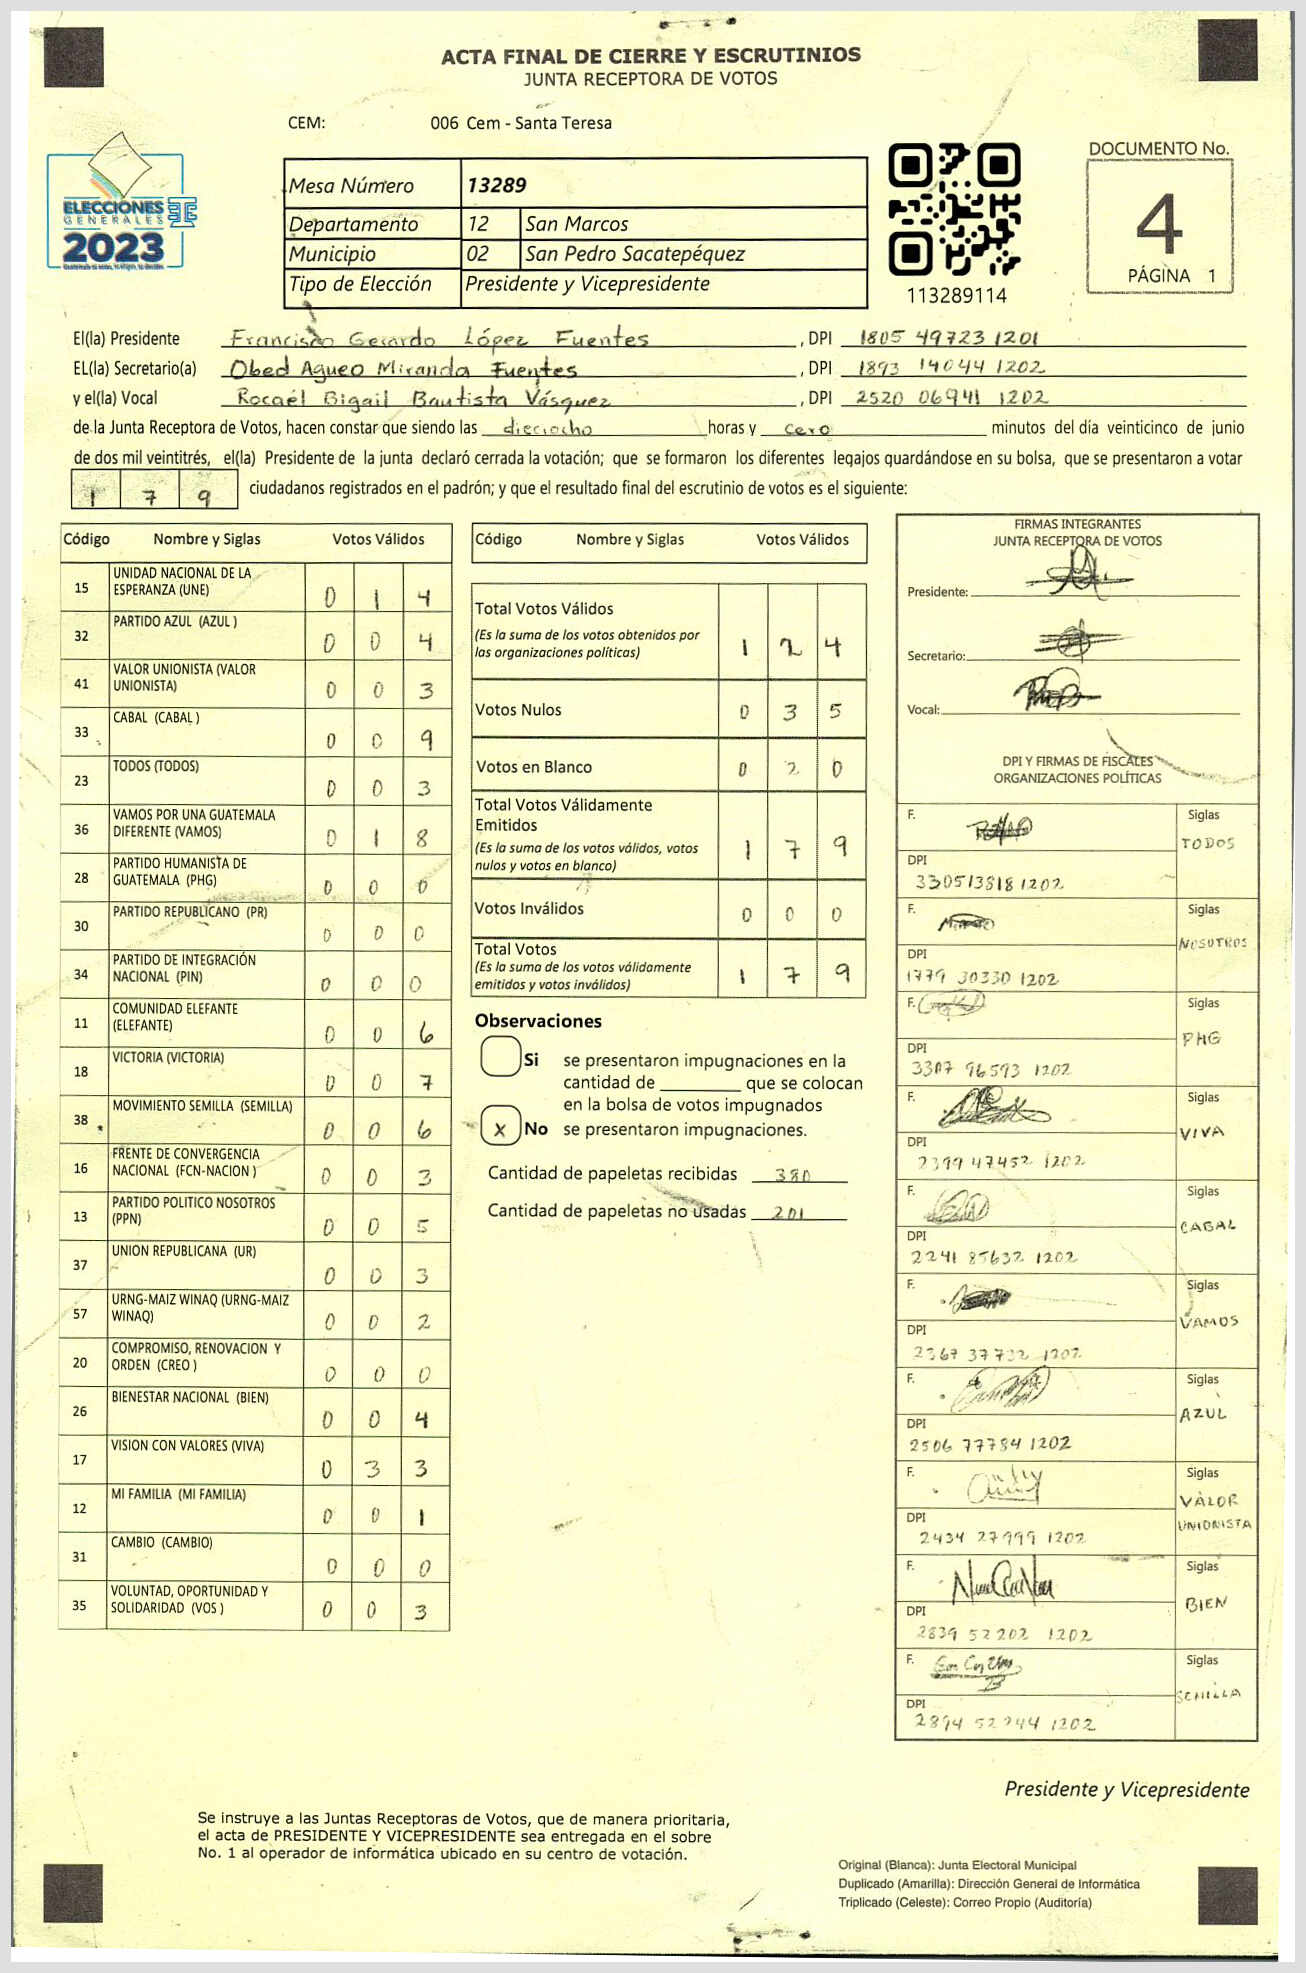 ACTA FINAL DE CIERRE Y ESCRUTINIOS
JUNTA RECEPTORA DE VOTOS
CEM: 006 Cem - Santa Teresa
ELECCIONES
GENERALES
2023
Mesa Número 13289
Departamento 12 San Marcos
Municipio 02 San Pedro Sacatepéquez
Tipo de Elección Presidente y Vicepresidente
113289114
DOCUMENTO No.
4
PÁGINA 1
El(la) Presidente Francisco Gerardo López Fuentes, DPI 1805 49723 1201
EL(la) Secretario(a) Obed Agueo Miranda Fuentes, DPI 1893 14044 1202
y el(la) Vocal Rocaél Bigail Bautista Vásquez, DPI 2520 06941 1202
de la Junta Receptora de Votos, hacen constar que siendo las dieciocho horas y cero minutos del día veinticinco de junio
de dos mil veintitrés, el(la) Presidente de la junta declaró cerrada la votación; que se formaron los diferentes legajos guardándose en su bolsa, que se presentaron a votar
1 7 9 ciudadanos registrados en el padrón; y que el resultado final del escrutinio de votos es el siguiente:
Código Nombre y Siglas Votos Válidos
15 UNIDAD NACIONAL DE LA ESPERANZA (UNE) 0 1 4
32 PARTIDO AZUL (AZUL ) 0 0 4
41 VALOR UNIONISTA (VALOR UNIONISTA) 0 0 3
33 CABAL (CABAL ) 0 0 9
23 TODOS (TODOS) 0 0 3
36 VAMOS POR UNA GUATEMALA DIFERENTE (VAMOS) 0 1 8
28 PARTIDO HUMANISTA DE GUATEMALA (PHG) 0 0 0
30 PARTIDO REPUBLICANO (PR) 0 0 0
34 PARTIDO DE INTEGRACIÓN NACIONAL (PIN) 0 0 0
11 COMUNIDAD ELEFANTE (ELEFANTE) 0 0 6
18 VICTORIA (VICTORIA) 0 0 7
38 MOVIMIENTO SEMILLA (SEMILLA) 0 0 6
16 FRENTE DE CONVERGENCIA NACIONAL (FCN-NACION ) 0 0 3
13 PARTIDO POLITICO NOSOTROS (PPN) 0 0 5
37 UNION REPUBLICANA (UR) 0 0 3
57 URNG-MAIZ WINAQ (URNG-MAIZ WINAQ) 0 0 2
20 COMPROMISO, RENOVACION Y ORDEN (CREO ) 0 0 0
26 BIENESTAR NACIONAL (BIEN) 0 0 4
17 VISION CON VALORES (VIVA) 0 3 3
12 MI FAMILIA (MI FAMILIA) 0 0 1
31 CAMBIO (CAMBIO) 0 0 0
35 VOLUNTAD, OPORTUNIDAD Y SOLIDARIDAD (VOS ) 0 0 3
Código Nombre y Siglas Votos Válidos
Total Votos Válidos 1 2 4
(Es la suma de los votos obtenidos por
las organizaciones políticas)
Votos Nulos 0 3 5
Votos en Blanco 0 2 0
Total Votos Válidamente
Emitidos 1 7 9
(Es la suma de los votos válidos, votos
nulos y votos en blanco)
Votos Inválidos 0 0 0
Total Votos 1 7 9
(Es la suma de los votos válidamente
emitidos y votos inválidos)
Observaciones
Si se presentaron impugnaciones en la
cantidad de ________ que se colocan
en la bolsa de votos impugnados
x No se presentaron impugnaciones.
Cantidad de papeletas recibidas 380
Cantidad de papeletas no usadas 201
FIRMAS INTEGRANTES
JUNTA RECEPTORA DE VOTOS
Presidente:
Secretario:
Vocal:
DPI Y FIRMAS DE FISCALES
ORGANIZACIONES POLÍTICAS
F. Siglas TODOS
DPI 330513818 1202
F. Siglas NOSOTROS
DPI 1779 30330 1202
F. Siglas PHG
DPI 3307 96593 1202
F. Siglas VIVA
DPI 2399 47452 1202
F. Siglas CABAL
DPI 2241 85632 1202
F. Siglas VAMOS
DPI 2367 37732 1202
F. Siglas AZUL
DPI 2506 77784 1202
F. Siglas VALOR UNIONISTA
DPI 2434 27999 1202
F. Siglas BIEN
DPI 2839 52202 1202
F. Siglas SEMILLA
DPI 2894 52244 1202
Presidente y Vicepresidente
Se instruye a las Juntas Receptoras de Votos, que de manera prioritaria,
el acta de PRESIDENTE Y VICEPRESIDENTE sea entregada en el sobre
No. 1 al operador de informática ubicado en su centro de votación.
Original (Blanca): Junta Electoral Municipal
Duplicado (Amarilla): Dirección General de Informática
Triplicado (Celeste): Correo Propio (Auditoría)